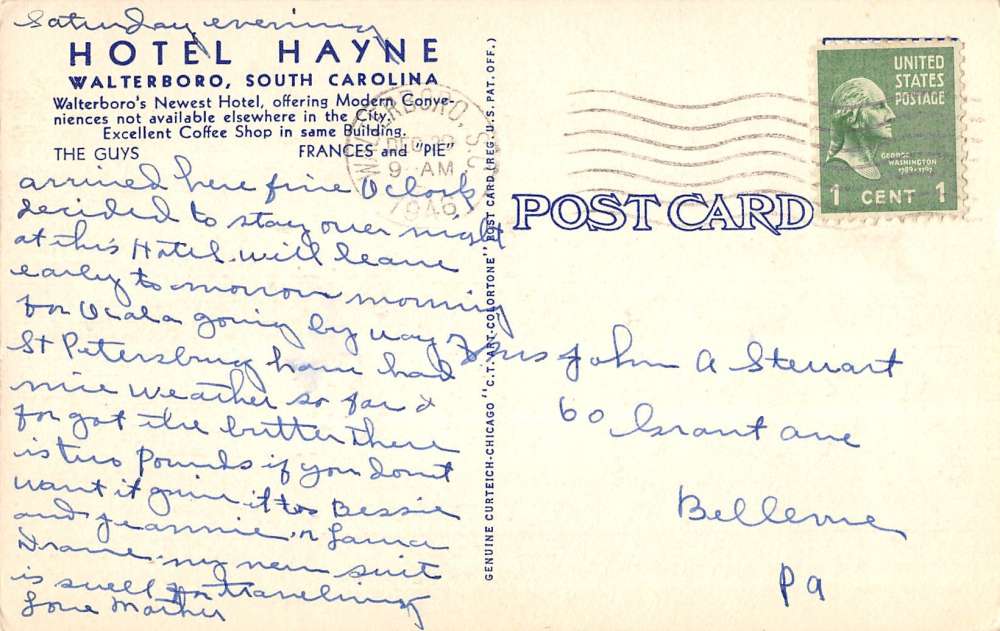 Saturday evening
HOTEL HAYNE
WALTERBORO, SOUTH CAROLINA
Walterboro's Newest Hotel, offering Modern Conve-
niences not available elsewhere in the City.
Excellent Coffee Shop in same Building.
THE GUYS FRANCES and "PIE"
arrived here five Oclock
decided to stay over night
at this Hotel. will leave
early to morrow morning
for Ocala going by way of
St Petersburg have had
nice weather so far I
for got the butter there
is two pounds if you dont
want it give it to Bessie
and Jeannie, or
my new suit
is swell for traveling
Love Mother
WALTERBORO, S.C.
9 AM
1946
GENUINE CURTEICH-CHICAGO "C.T. ART-COLORTONE" POST CARD (REG. U.S. PAT. OFF.)
POST CARD
UNITED
STATES
POSTAGE
GEORGE
WASHINGTON
1789-1797
1 CENT 1
Mrs John A Stewart
60 Grant ave
Bellevue
Pa